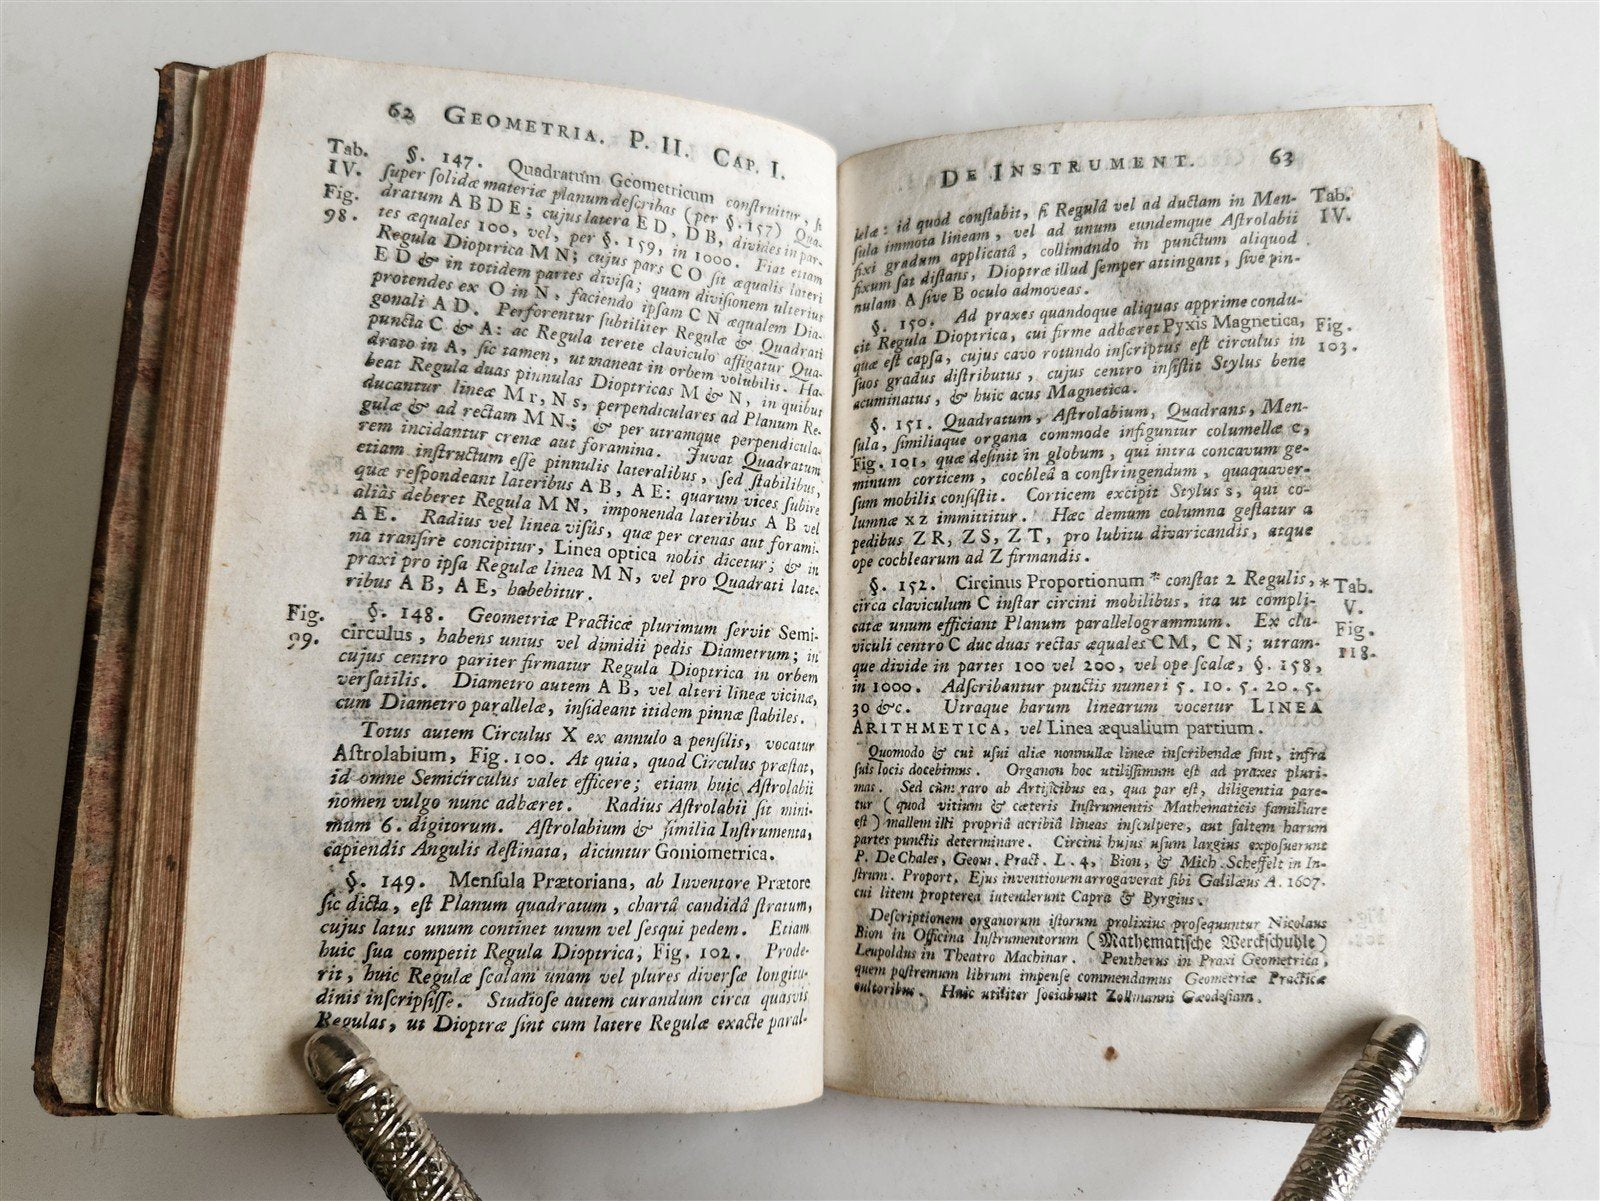 62 GEOMETRIA. P. II. CAP. I.
Tab. IV. Fig. 98.
§. 147. Quadratum Geometricum construitur, si
super solidæ materiæ planum describas (per §. 157) Qua-
dratum A B D E; cujus latera E D, D B, divides in par-
tes æquales 100, vel, per §. 159, in 1000. Fiat etiam
Regula Dioptrica M N; cujus pars C O sit æqualis lateri
E D & in totidem partes divisa; quam divisionem ulterius
protendes ex O in N, faciendo ipsam C N æqualem Dia-
gonali A D. Perforentur subtiliter Regulæ & Quadrati
puncta C & A: ac Regula terete claviculo affigatur Qua-
drato in A, sic tamen, ut maneat in orbem volubilis. Ha-
beat Regula duas pinnulas Dioptricas M & N, in quibus
ducantur lineæ M r, N s, perpendiculares ad Planum Re-
gulæ & ad rectam M N; & per utramque perpendicula-
rem incidantur crenæ aut foramina. Juvat Quadratum
etiam instructum esse pinnulis lateralibus, sed stabilibus,
quæ respondeant lateribus A B, A E: quarum vices subire
aliàs deberet Regula M N, imponenda lateribus A B vel
A E. Radius vel linea visûs, quæ per crenas aut forami-
na transire concipitur, Linea optica nobis dicetur; & in
praxi pro ipsa Regulæ linea M N, vel pro Quadrati late-
ribus A B, A E, habebitur.
Fig. 99.
§. 148. Geometriæ Practicæ plurimum servit Semi-
circulus, habens unius vel dimidii pedis Diametrum; in
cujus centro pariter firmatur Regula Dioptrica in orbem
versatilis. Diametro autem A B, vel alteri lineæ vicinæ,
cum Diametro parallelæ, insideant itidem pinnæ stabiles.
Totus autem Circulus X ex annulo a pensilis, vocatur
Astrolabium, Fig. 100. At quia, quod Circulus præstat,
id omne Semicirculus valet efficere; etiam huic Astrolabii
nomen vulgo nunc adhæret. Radius Astrolabii sit mini-
mum 6. digitorum. Astrolabium & similia Instrumenta,
capiendis Angulis destinata, dicuntur Goniometrica.
§. 149. Mensula Prætoriana, ab Inventore Prætore
sic dicta, est Planum quadratum, chartâ candidâ stratum,
cujus latus unum continet unum vel sesqui pedem. Etiam
huic sua competit Regula Dioptrica, Fig. 102. Prode-
rit, huic Regulæ scalam unam vel plures diversæ longitu-
dinis inscripsisse. Studiose autem curandum circa quasvis
Regulas, ut Dioptræ sint cum latere Regulæ exacte paral-
DE INSTRUMENT. 63
lelæ: id quod constabit, si Regulâ vel ad ductam in Men-
sula immota lineam, vel ad unum eundemque Astrolabii
fixi gradum applicatâ, collimando in punctum aliquod
fixum sat distans, Dioptræ illud semper attingant, sive pin-
nulam A sive B oculo admoveas.
Tab. IV.
§. 150. Ad praxes quandoque aliquas apprime condu-
cit Regula Dioptrica, cui firme adhæret Pyxis Magnetica,
quæ est capsa, cujus cavo rotundo inscriptus est circulus in
suos gradus distributus, cujus centro insistit Stylus bene
acuminatus, & huic acus Magnetica.
Fig. 103.
§. 151. Quadratum, Astrolabium, Quadrans, Men-
sula, similiaque organa commode infiguntur columellæ c,
Fig. 101, quæ desinit in globum, qui intra concavum ge-
minum corticem, cochleâ a constringendum, quaquaver-
sum mobilis consistit. Corticem excipit Stylus s, qui co-
lumnæ x z immittitur. Hæc demum columna gestatur a
pedibus Z R, Z S, Z T, pro lubitu divaricandis, atque
ope cochlearum ad Z firmandis.
§. 152. Circinus Proportionum * constat 2 Regulis,
circa claviculum C instar circini mobilibus, ita ut compli-
catæ unum efficiant Planum parallelogrammum. Ex cla-
viculi centro C duc duas rectas æquales C M, C N; utram-
que divide in partes 100 vel 200, vel ope scalæ, §. 158,
in 1000. Adscribantur punctis numeri 5. 10. 5. 20. 5.
30 &c. Utraque harum linearum vocetur LINEA
ARITHMETICA, vel Linea æqualium partium.
* Tab. V. Fig. 118.
Quomodo & cui usui aliæ nonnullæ lineæ inscribendæ sint, infra
suis locis docebimus. Organon hoc utilissimum est ad praxes pluri-
mas. Sed cùm raro ab Artificibus ea, qua par est, diligentia pare-
tur (quod vitium & cæteris Instrumentis Mathematicis familiare
est) mallem illi propriâ acribiâ lineas insculpere, aut saltem harum
partes punctis determinare. Circini hujus usum largius exposuerunt
P. De Chales, Geom. Pract. L. 4, Bion, & Mich. Scheffelt in In-
strum. Proport. Ejus inventionem arrogaverat sibi Galilæus A. 1607.
cui litem propterea intenderunt Capra & Byrgius.
Descriptionem organorum istorum prolixius prosequuntur Nicolaus
Bion in Officina Instrumentorum (Mathematische Werckschuhle)
Leupoldus in Theatro Machinar. Pentherus in Praxi Geometrica,
quem postremum librum impense commendamus Geometriæ Practicæ
cultoribus. Huic utiliter sociabunt Zollmanni Gæodesiam.